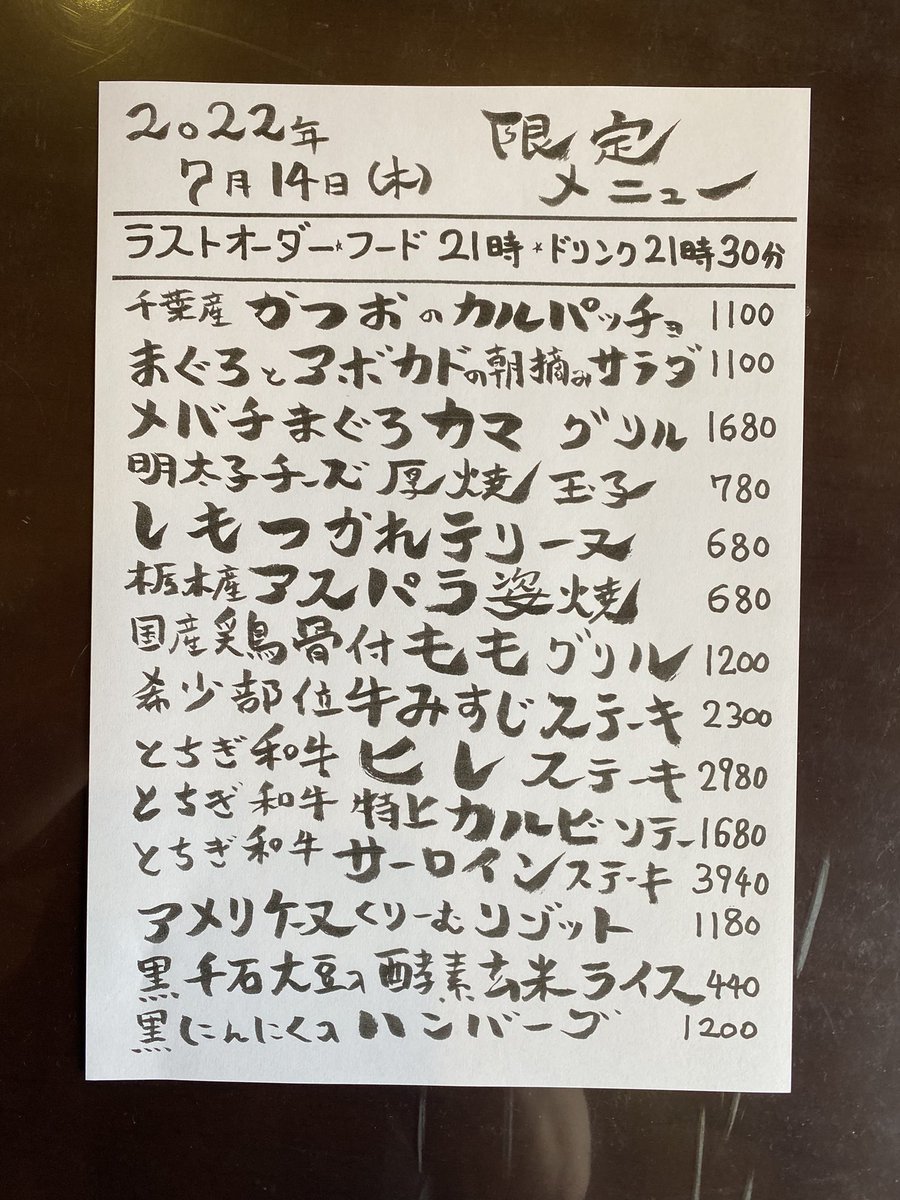 2022年 限定
7月14日(木) メニュー
ラストオーダー*フード 21時 *ドリンク21時30分
千葉産 かつおのカルパッチョ 1100
まぐろとアボカドの朝摘みサラダ 1100
メバチまぐろカマ グリル 1680
明太子チーズ厚焼玉子 780
しもつかれテリーヌ 680
栃木産アスパラ姿焼 680
国産鶏骨付ももグリル 1200
希少部位牛みすじステーキ 2300
とちぎ和牛 ヒレステーキ 2980
とちぎ和牛 特上カルビソテー 1680
とちぎ和牛 サーロインステーキ 3940
アメリケーヌくりーむリゾット 1180
黒千石大豆入酵素玄米ライス 440
黒にんにく入ハンバーグ 1200